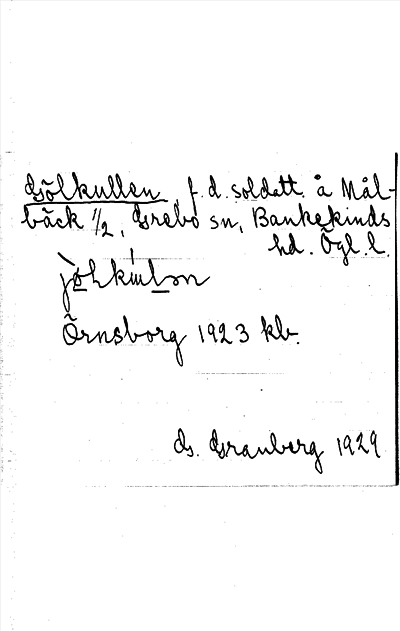 Gjölkullen, f.d. soldatt. å Mål-
bäck 1/2, Grebo sn, Bankekinds
hd. Ögl. l.
Örnsborg 1923 kb.
G. Granberg 1929